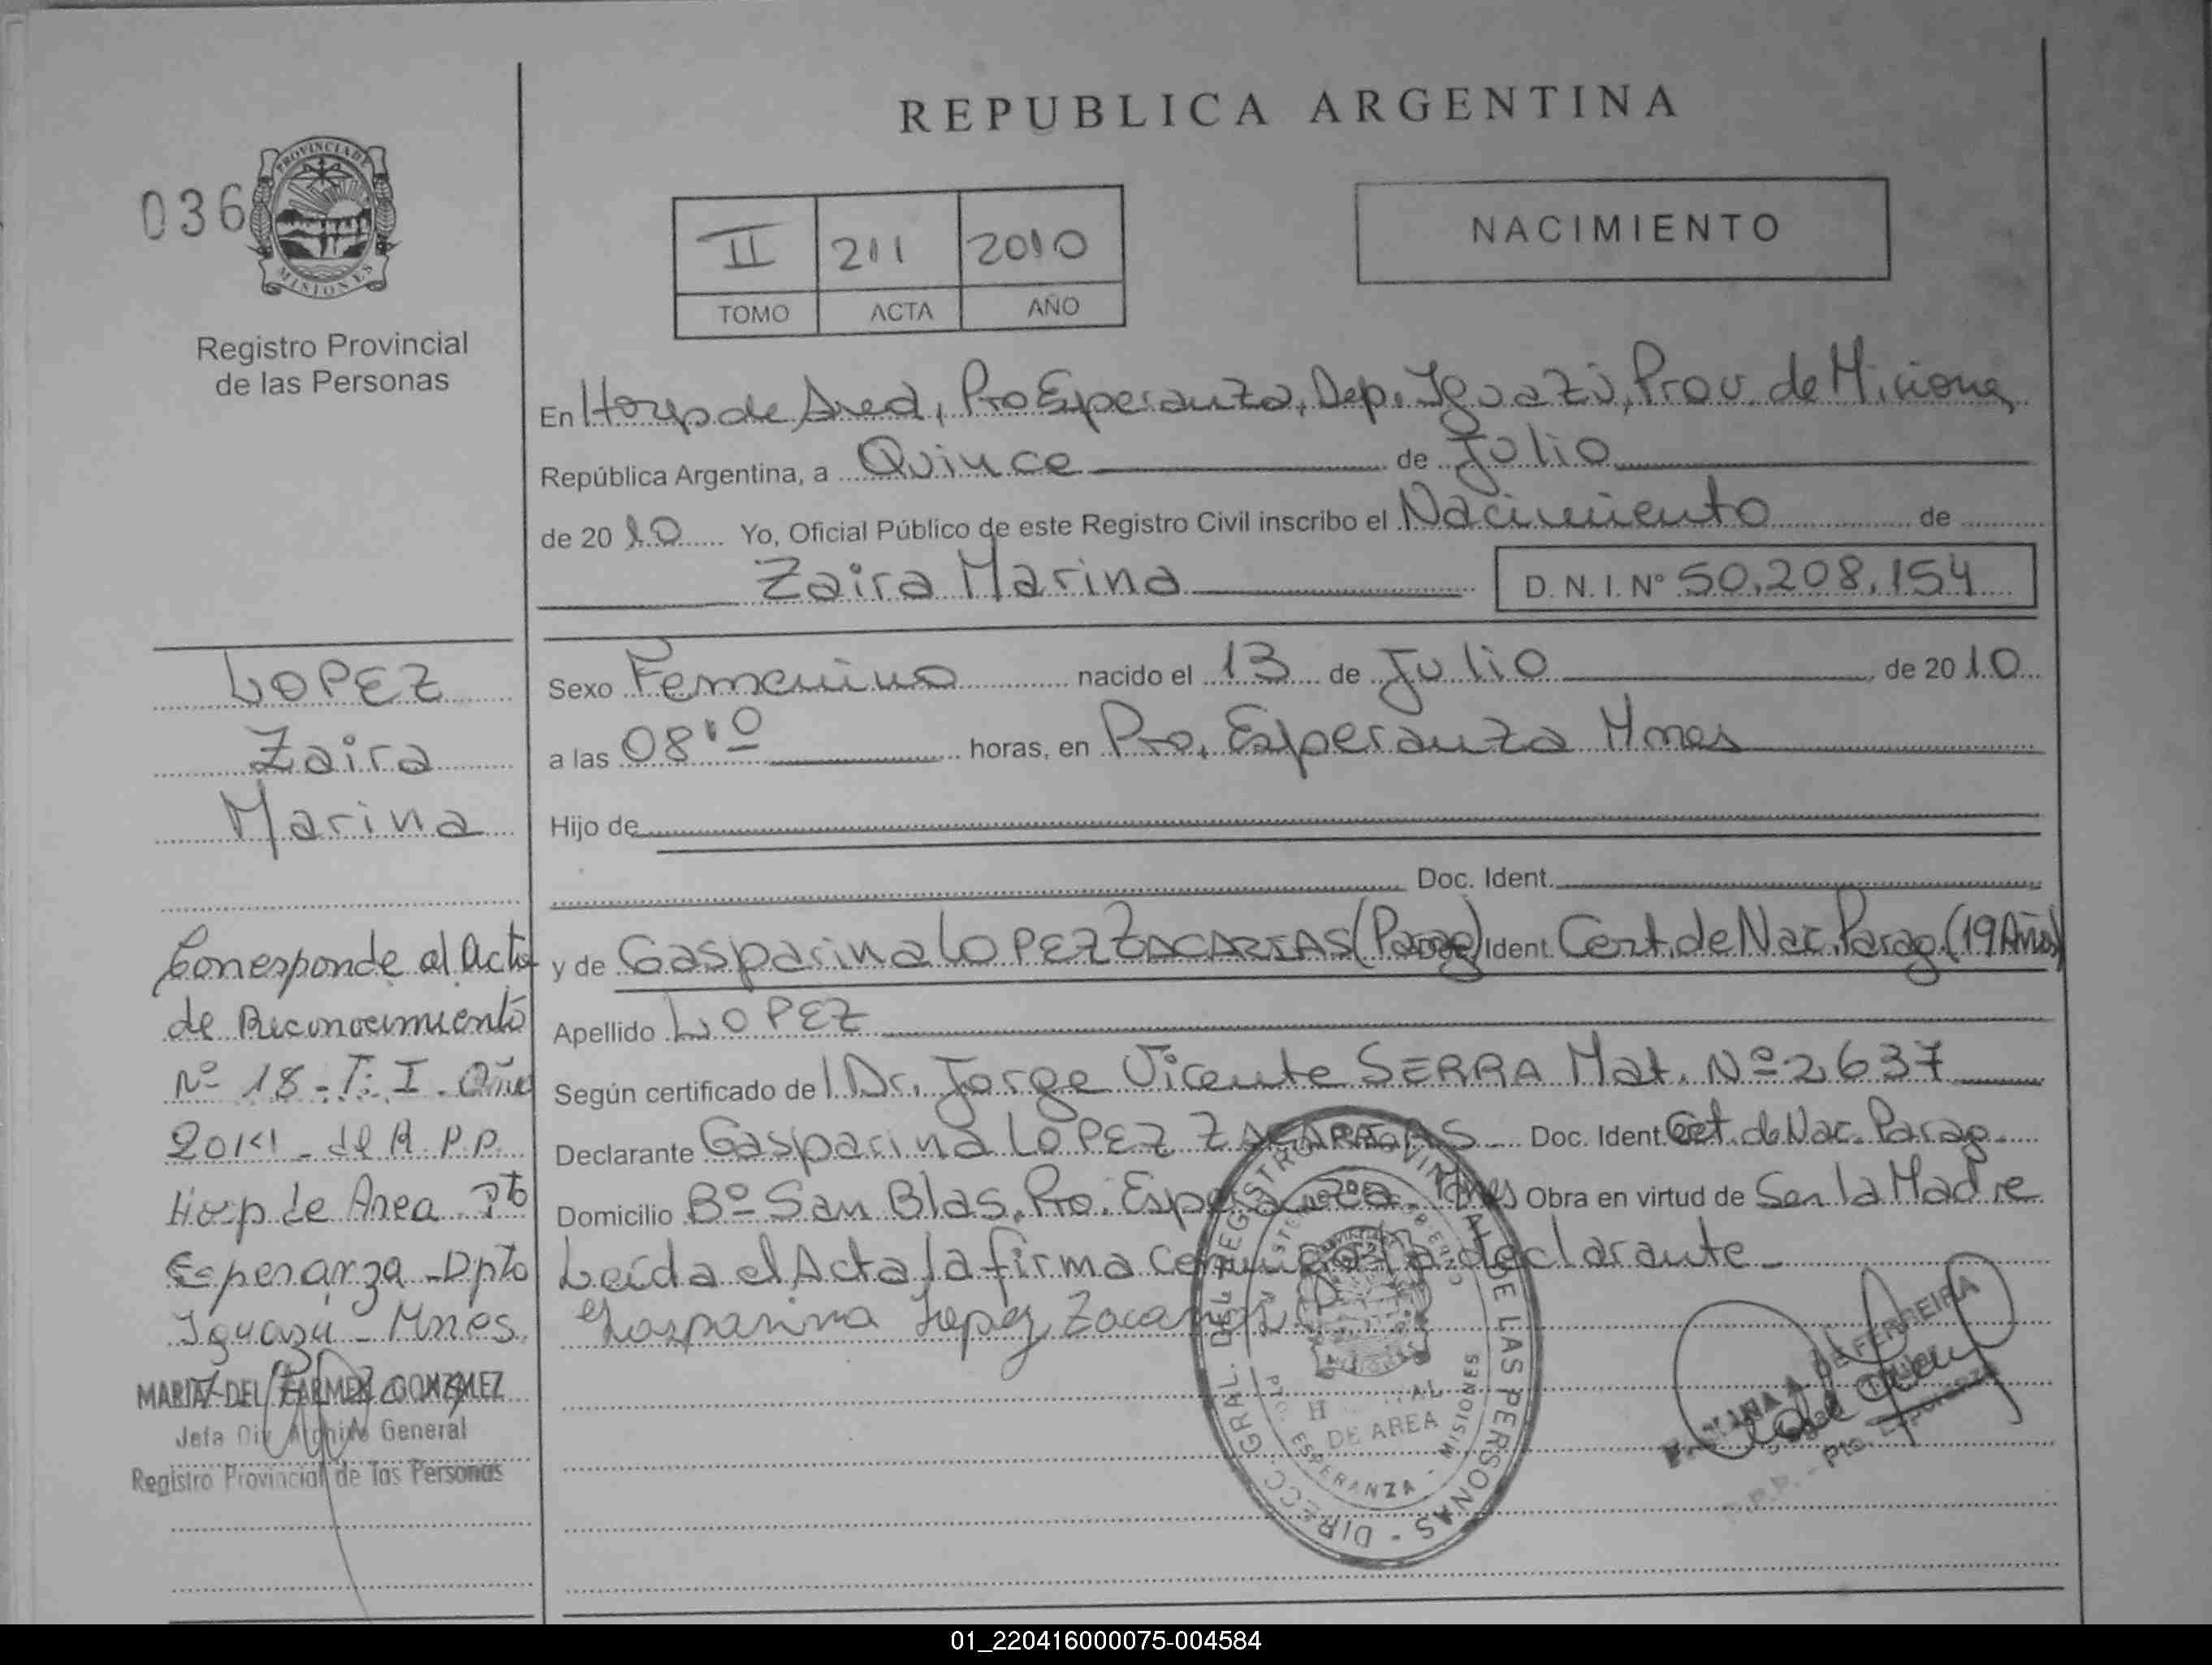 REPUBLICA ARGENTINA
036
PROVINCIA DE
MISIONES
Registro Provincial
de las Personas
II 211 2010
TOMO ACTA AÑO
NACIMIENTO
En Hosp de Area, Pto Esperanza, Dep. Iguazú, Prov. de Misiones
República Argentina, a Quince de Julio
de 2010 Yo, Oficial Público de este Registro Civil inscribo el Nacimiento de
Zaira Marina D. N. I. Nº 50.208.154
LOPEZ
Zaira
Marina
Sexo Femenino nacido el 13 de Julio de 2010
a las 08'10 horas, en Pto. Esperanza Mnes
Hijo de
Doc. Ident.
y de Gasparina LOPEZ ZACARIAS (Parag) Doc. Ident. Cert. de Nac. Parag. (19 Años)
Apellido LOPEZ
Según certificado de Dr. Jorge Vicente SERRA Mat. Nº 2637
Declarante Gasparina LOPEZ ZACARIAS Doc. Ident. Cet. de Nac. Parag.
Domicilio Bº San Blas, Pto. Esperanza Mnes Obra en virtud de Ser la Madre
Leída el Acta la firma la declarante
Gasparina Lopez Zacarias
Corresponde al Acta
de Reconocimiento
Nº 18 - T: I - Año
del R.P.P.
Hosp de Area Pto
Esperanza - Dpto
Iguazú - Mnes.
MARIA DEL CARMEN GONZALEZ
Jefa Div Archivo General
Registro Provincial de las Personas
DIRECC. GRAL. DEL REGISTRO PROVINCIAL DE LAS PERSONAS
HOSPITAL
DE AREA
PTO. ESPERANZA - MISIONES
FERREIRA
R.P.P. - Pto. Esperanza
01_220416000075-004584